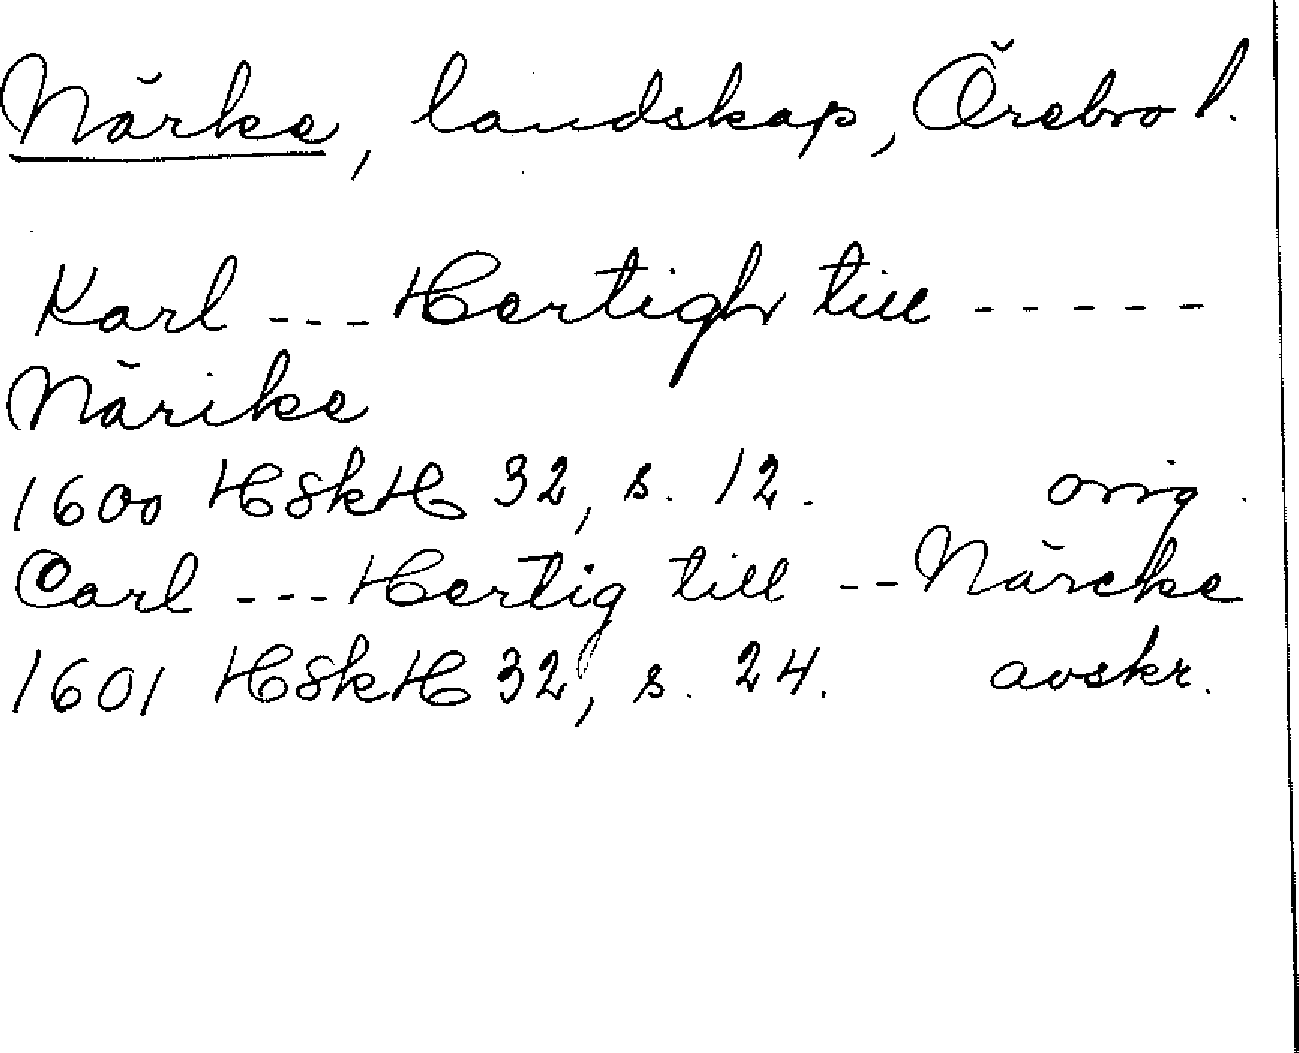 Närke, landskap, Örebro l.
Karl --- Hertigh till -----
Närike
1600 HSkH 32, s. 12. orig.
Carl --- Hertig till -- Närcke
1601 HSkH 32, s. 24. avskr.